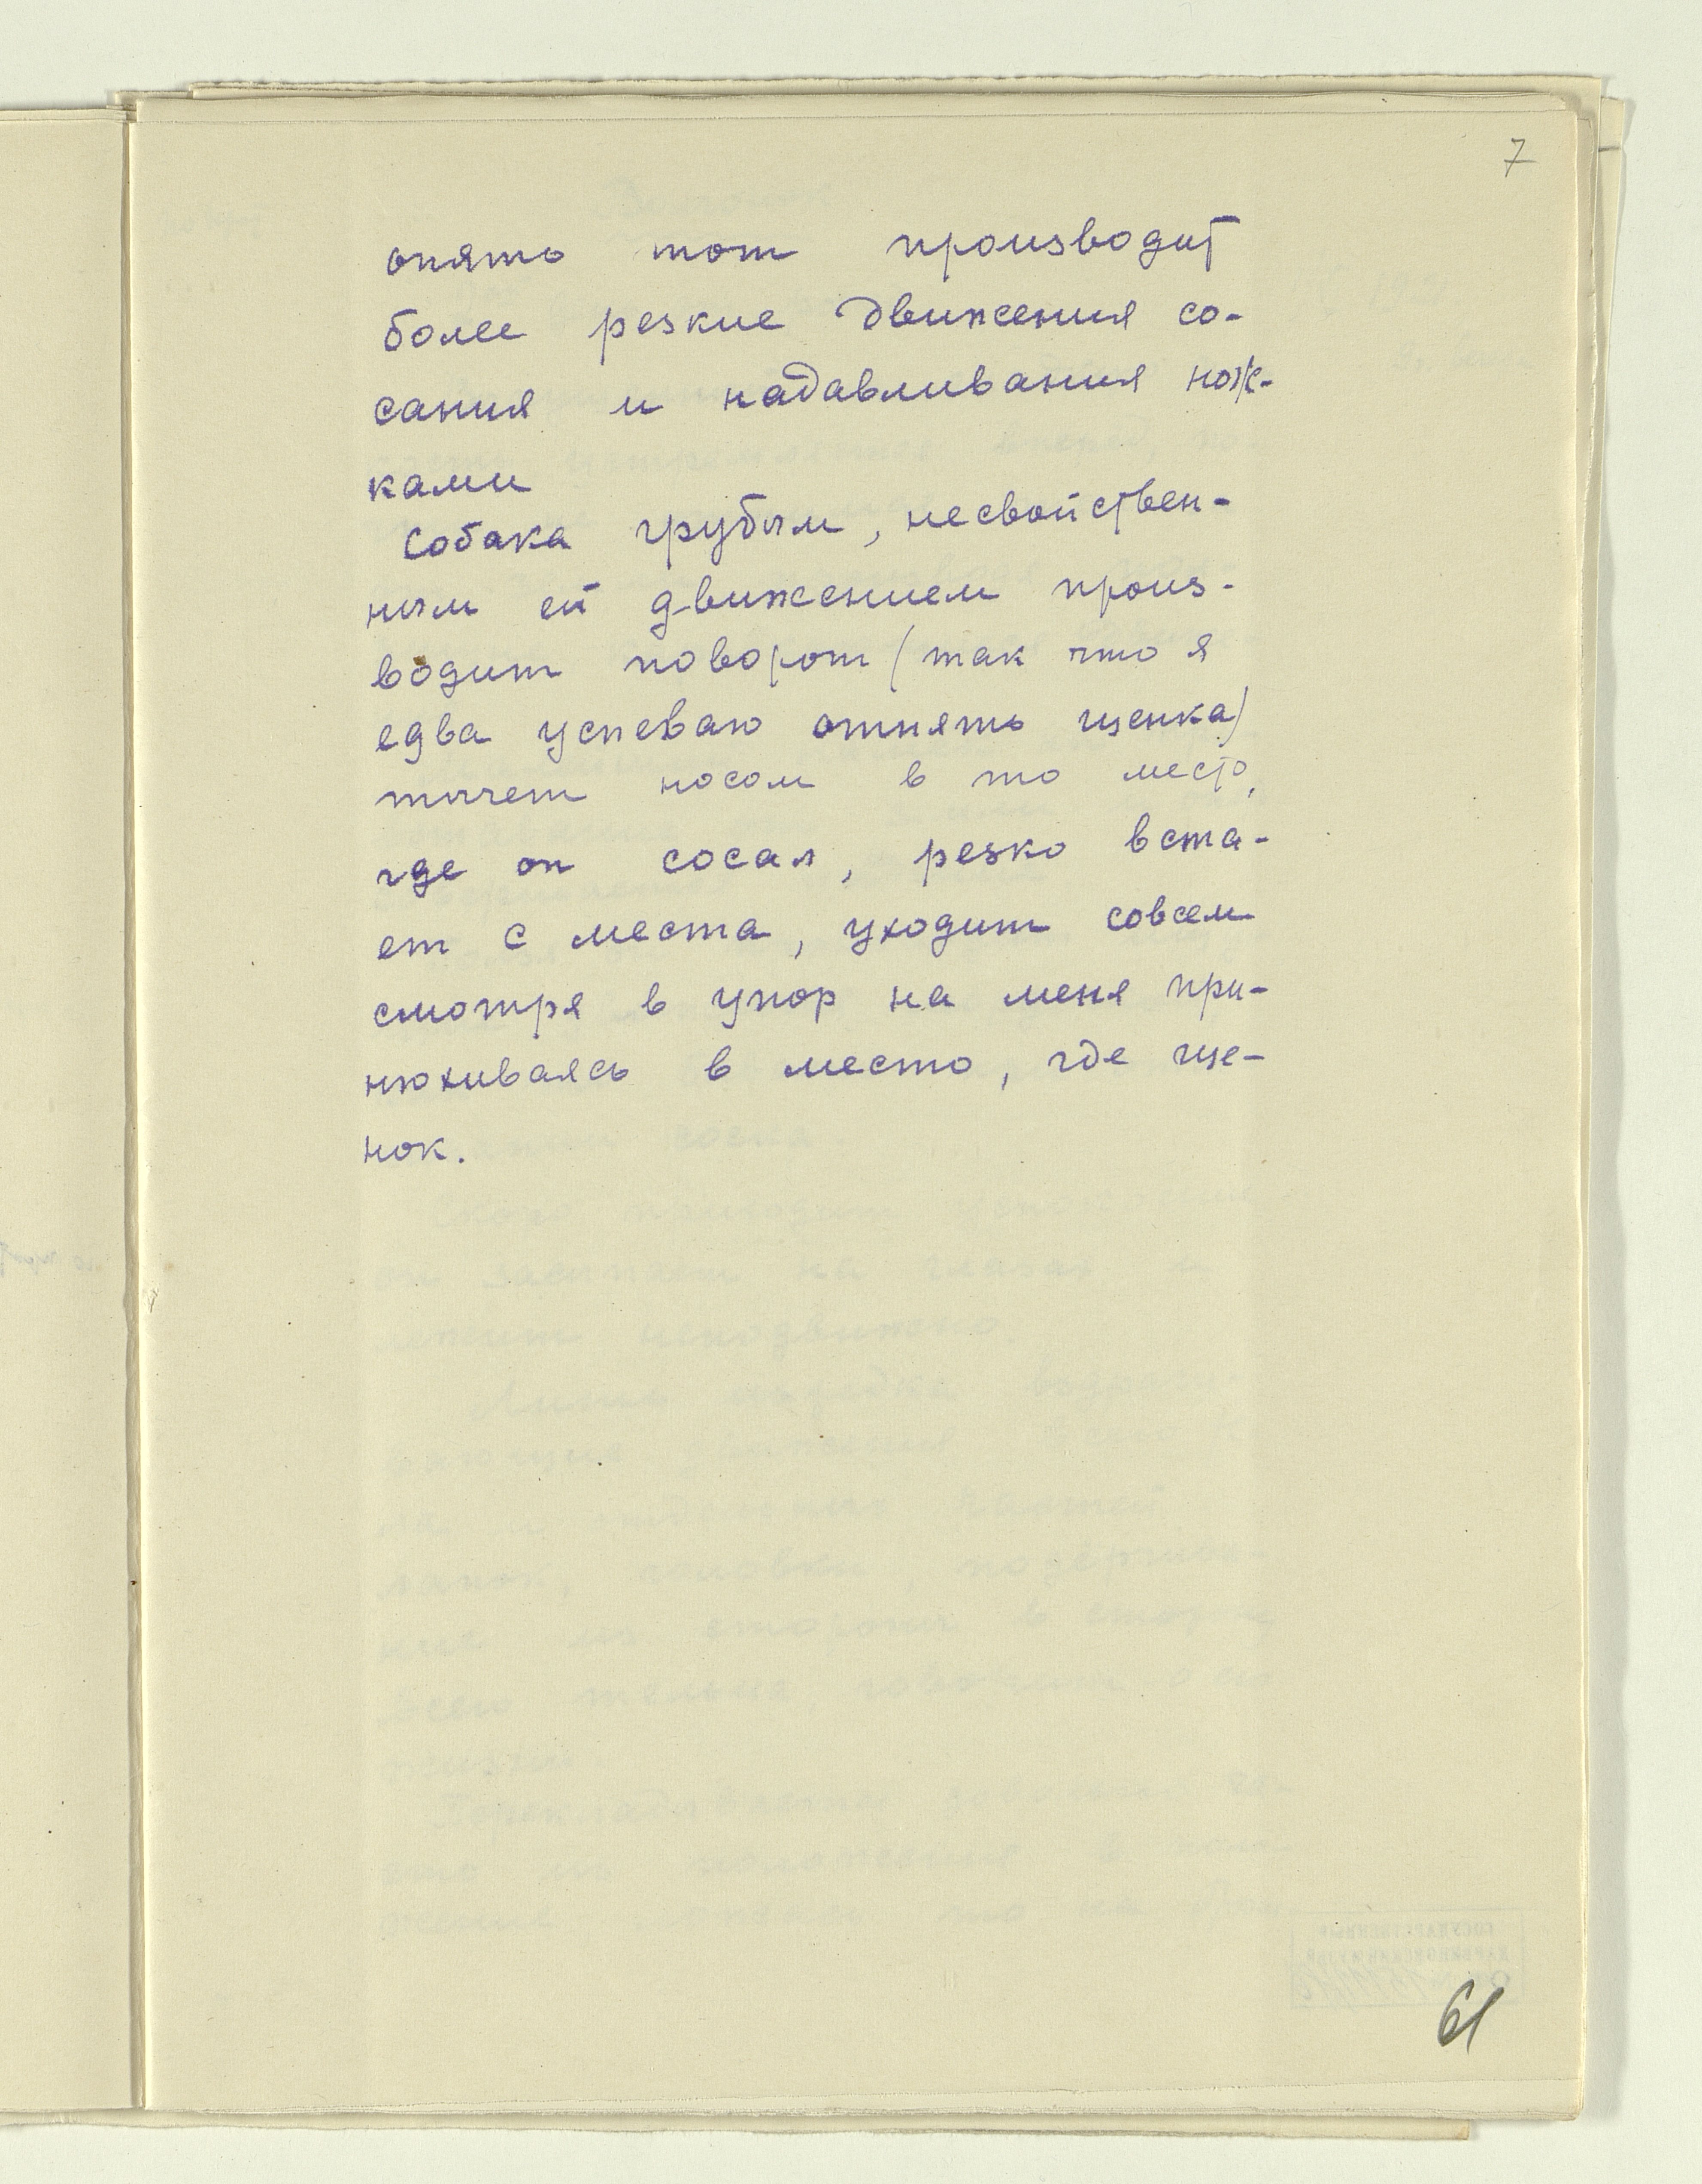 7
опять тот производит
более резкие движения со-
сания и надавливания нож-
ками
Собака грубым, несвойствен-
ным ей движением произ-
водит поворот (так что я
едва успеваю отнять щенка)
тычет носом в то место,
где он сосал, резко вста-
ет с места, уходит совсем
смотря в упор на меня при-
нюхиваясь в место, где ще-
нок.
61